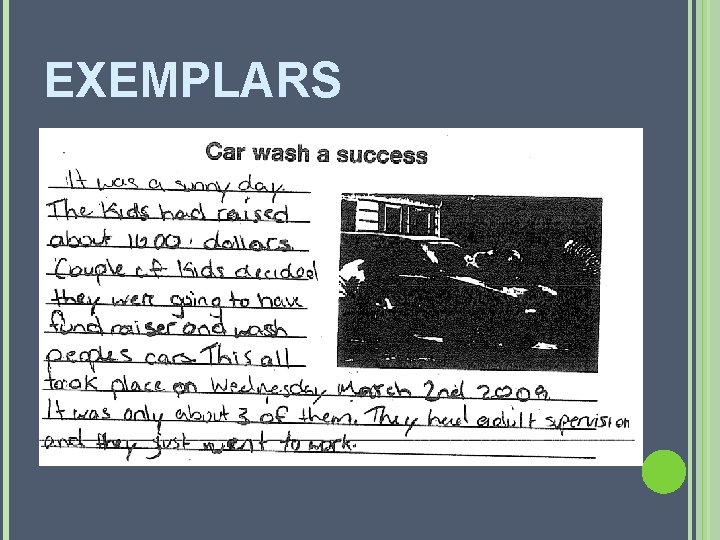 EXEMPLARS
Car wash a success
It was a sunny day.
The Kids had raised
about 1000. dollars.
Couple of Kids decided
they were going to have
fundraiser and wash
peoples cars. This all
took place on Wednesday March 2nd 2009.
It was only about 3 of them. They had adult supervision
and they just went to work.